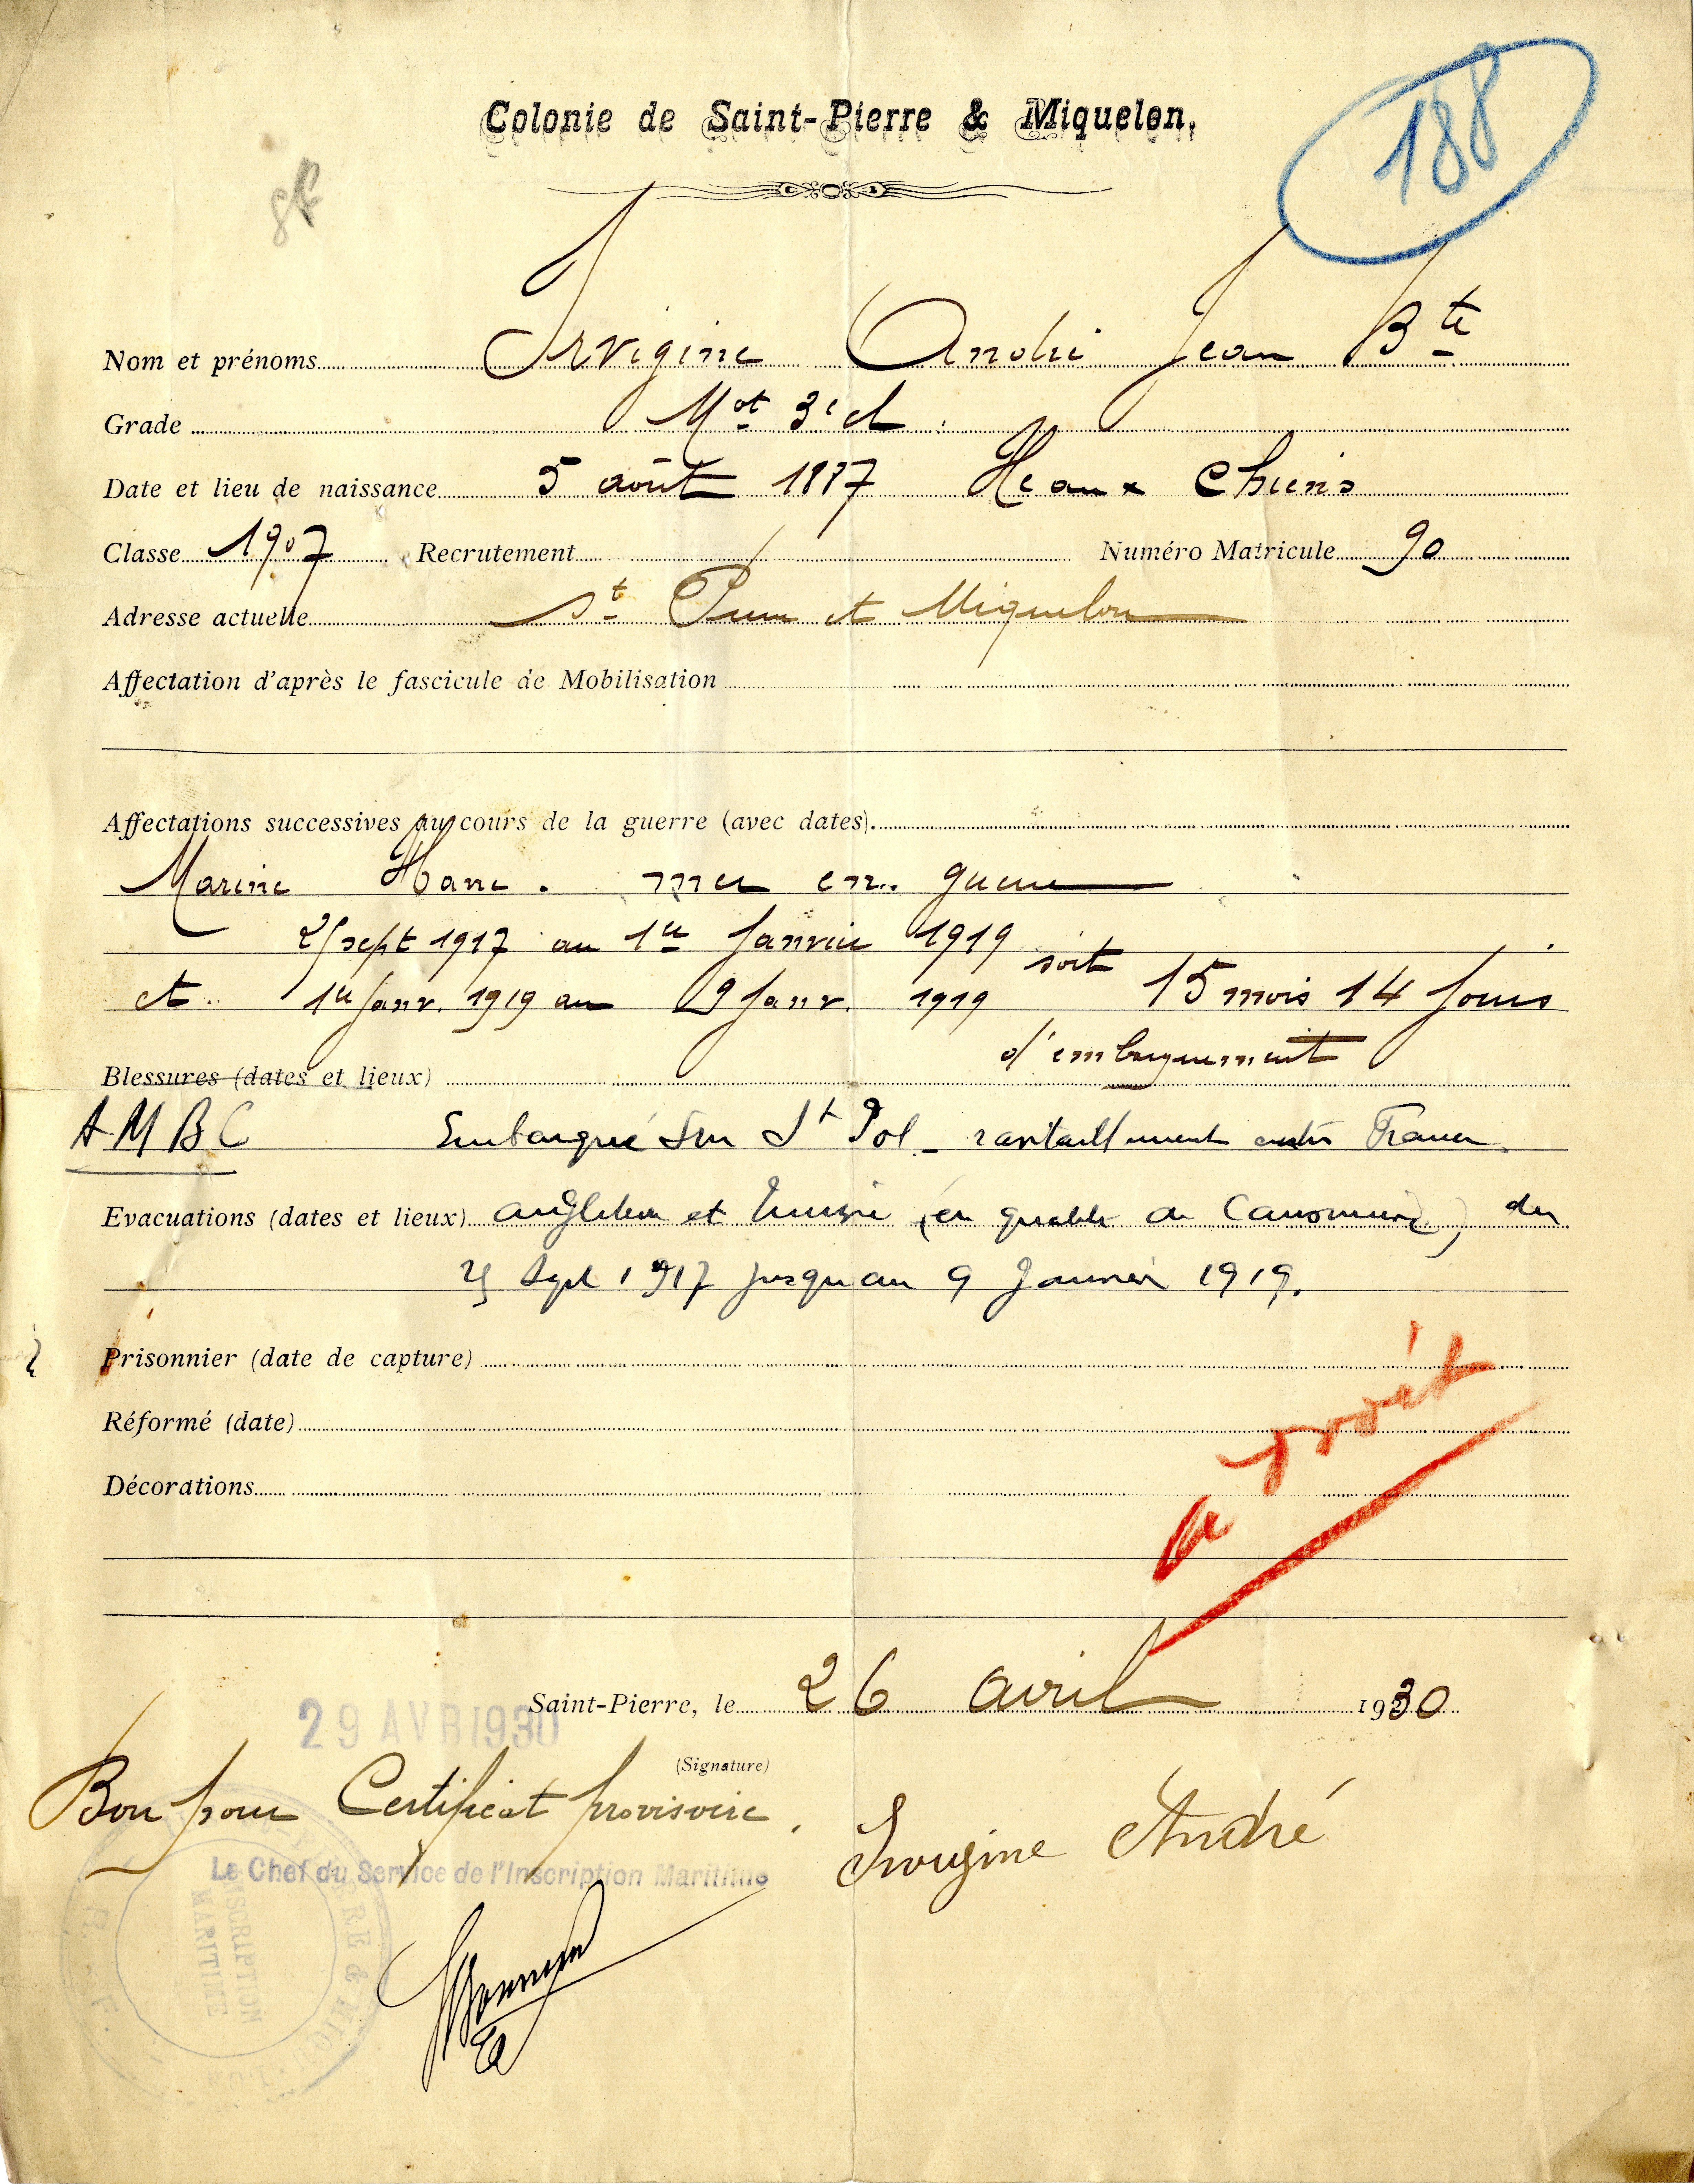 188
Colonie de Saint-Pierre & Miquelon.
Nom et prénoms Irvigine André Jean Bte
Grade Mot 3e cl
Date et lieu de naissance 5 août 1887 Ile aux Chiens
Classe 1907 Recrutement Numéro Matricule 90
Adresse actuelle St Pierre et Miquelon
Affectation d'après le fascicule de Mobilisation
Affectations successives au cours de la guerre (avec dates).
Marine March. mer en guerre
25 sept 1917 au 1er Janvier 1919
et 1er Janv. 1919 au 9 Janv. 1919 soit 15 mois 14 jours
d'embarquement
Blessures (dates et lieux)
AMBC Embarqué sur St Pol - ravitaillement entre France
Evacuations (dates et lieux) Angleterre et Tunisie (en qualité de Canonnier) du
25 Sept 1917 jusqu'au 9 Janvier 1919.
Prisonnier (date de capture)
Réformé (date)
Décorations
a droit
Saint-Pierre, le 26 avril 1930
29 AVR 1930
(Signature)
Bon pour Certificat provisoire.
Irvigine André
Le Chef du Service de l'Inscription Maritime
INSCRIPTION
MARITIME